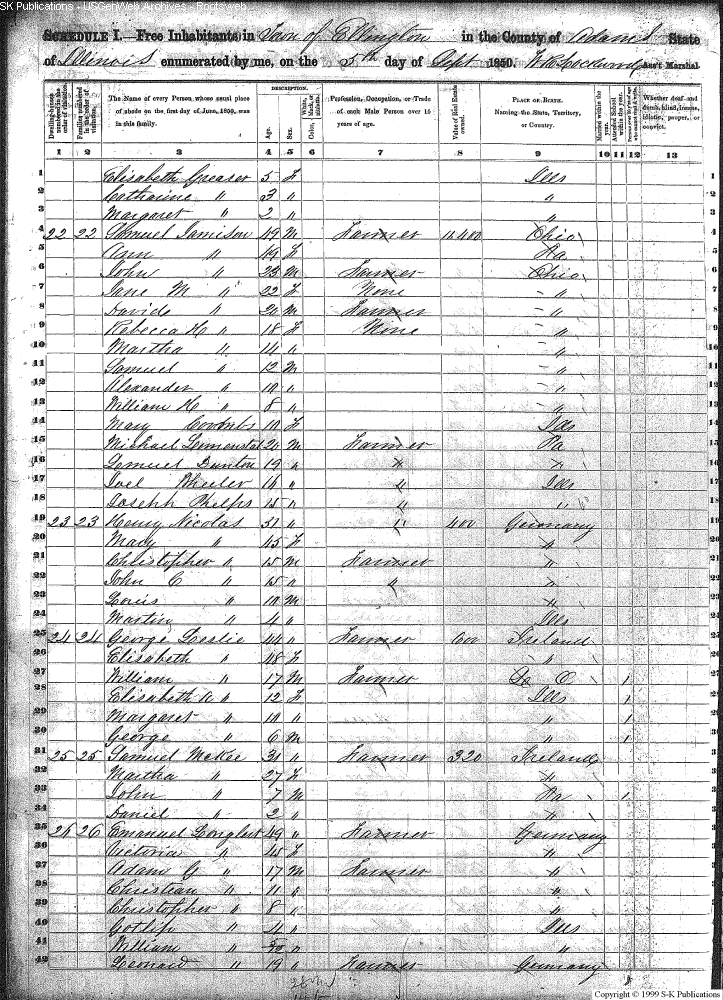 SK Publications - USGenWeb Archives - Rootsweb
SCHEDULE I.—Free Inhabitants in Town of Ellington in the County of Adams State
of Illinois enumerated by me, on the 5th day of Sept 1850. Ass't Marshal
Dwelling-houses numbered in the order of visitation.
Families numbered in the order of visitation.
The Name of every Person whose usual place of abode on the first day of June, 1850, was in this family.
DESCRIPTION.
Age.
Sex.
White, black, or mulatto.
Color,
Profession, Occupation, or Trade of each Male Person over 15 years of age.
Value of Real Estate owned.
PLACE OF BIRTH. Naming the State, Territory, or Country.
Married within the year.
Attended School within the year.
Whether deaf and dumb, blind, insane, idiotic, pauper, or convict.
1 2 3 4 5 6 7 8 9 10 11 12 13
1 Elisabeth Greaser 5 f Ills 1
2 Catharine " 3 " " 2
3 Margaret " 2 " " 3
4 22 22 Samuel Jamison 49 M Farmer Ohio 4
5 Ann " 49 f Pa 5
6 John " 23 M Farmer Ohio 6
7 Jane M " 22 f None " 7
8 Davide " 20 M Farmer " 8
9 Rebecca H " 18 f None " 9
10 Martha " 14 " " 10
11 Samuel " 12 M " 11
12 Alexander " 10 " " 12
13 William H " 8 " " 13
14 Mary 10 f Ills 14
15 Michael 20 M Farmer Pa 15
16 Lemuel Dunton 19 " " " 16
17 Joel Wheeler 16 " " Ills 17
18 Joseph Phelps 15 " " " 18
19 23 23 Henry Nicolas 51 " " 400 Germany 19
20 Mary " 45 f " 20
21 Christopher " 15 M Farmer " 21
22 John C " 15 " " " 22
23 Louis " 10 M " 23
24 Martin " 4 " Ills 24
25 24 24 George Leslie 44 " Farmer 600 Ireland 25
26 Elisabeth " 48 f " 26
27 William " 17 M Farmer 1 27
28 Elisabeth A " 12 f Ills 1 28
29 Margaret " 10 " " 1 29
30 George " 6 M " 1 30
31 25 25 Samuel McKee 31 " Farmer 320 Ireland 31
32 Martha " 27 f " 32
33 John " 7 M Pa 1 33
34 Daniel " 2 " " 34
35 26 26 Emanuel 49 " Farmer Germany 35
36 Victoria " 45 f " 36
37 Adam G " 17 M Farmer " 37
38 Christian " 11 " " 38
39 Christopher " 8 " " 39
40 Gotlip " 4 " Ills 40
41 William " " " 41
42 Leonard " 19 " Farmer Germany 42
Copyright © 1999 S-K Publications